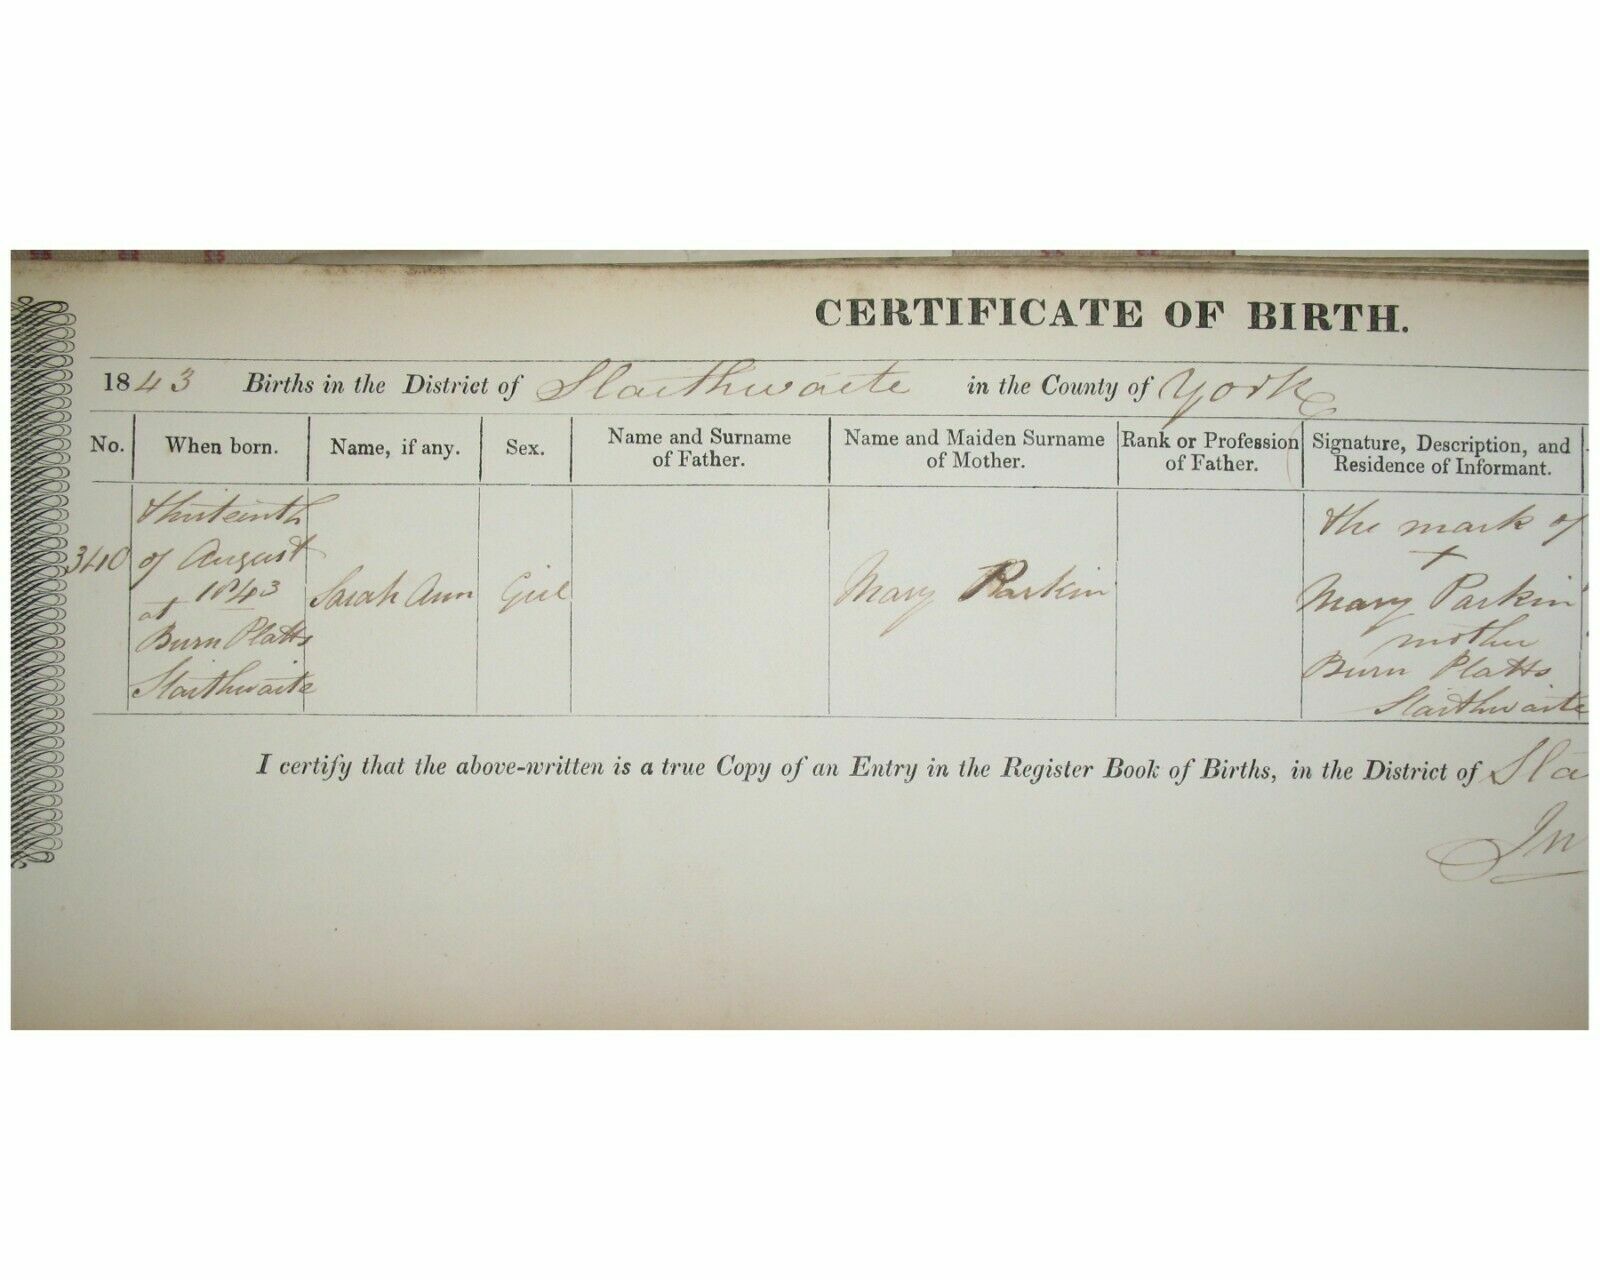 CERTIFICATE OF BIRTH.
1843 Births in the District of Slaithwaite in the County of York
No. When born. Name, if any. Sex. Name and Surname of Father. Name and Maiden Surname of Mother. Rank or Profession of Father. Signature, Description, and Residence of Informant.
340
thirteenth
of August
1843
at
Burn Platts
Slaithwaite
Sarah Ann
Girl
Mary Parkin
the mark of
x
Mary Parkin
mother
Burn Platts
Slaithwaite
I certify that the above-written is a true Copy of an Entry in the Register Book of Births, in the District of Sla